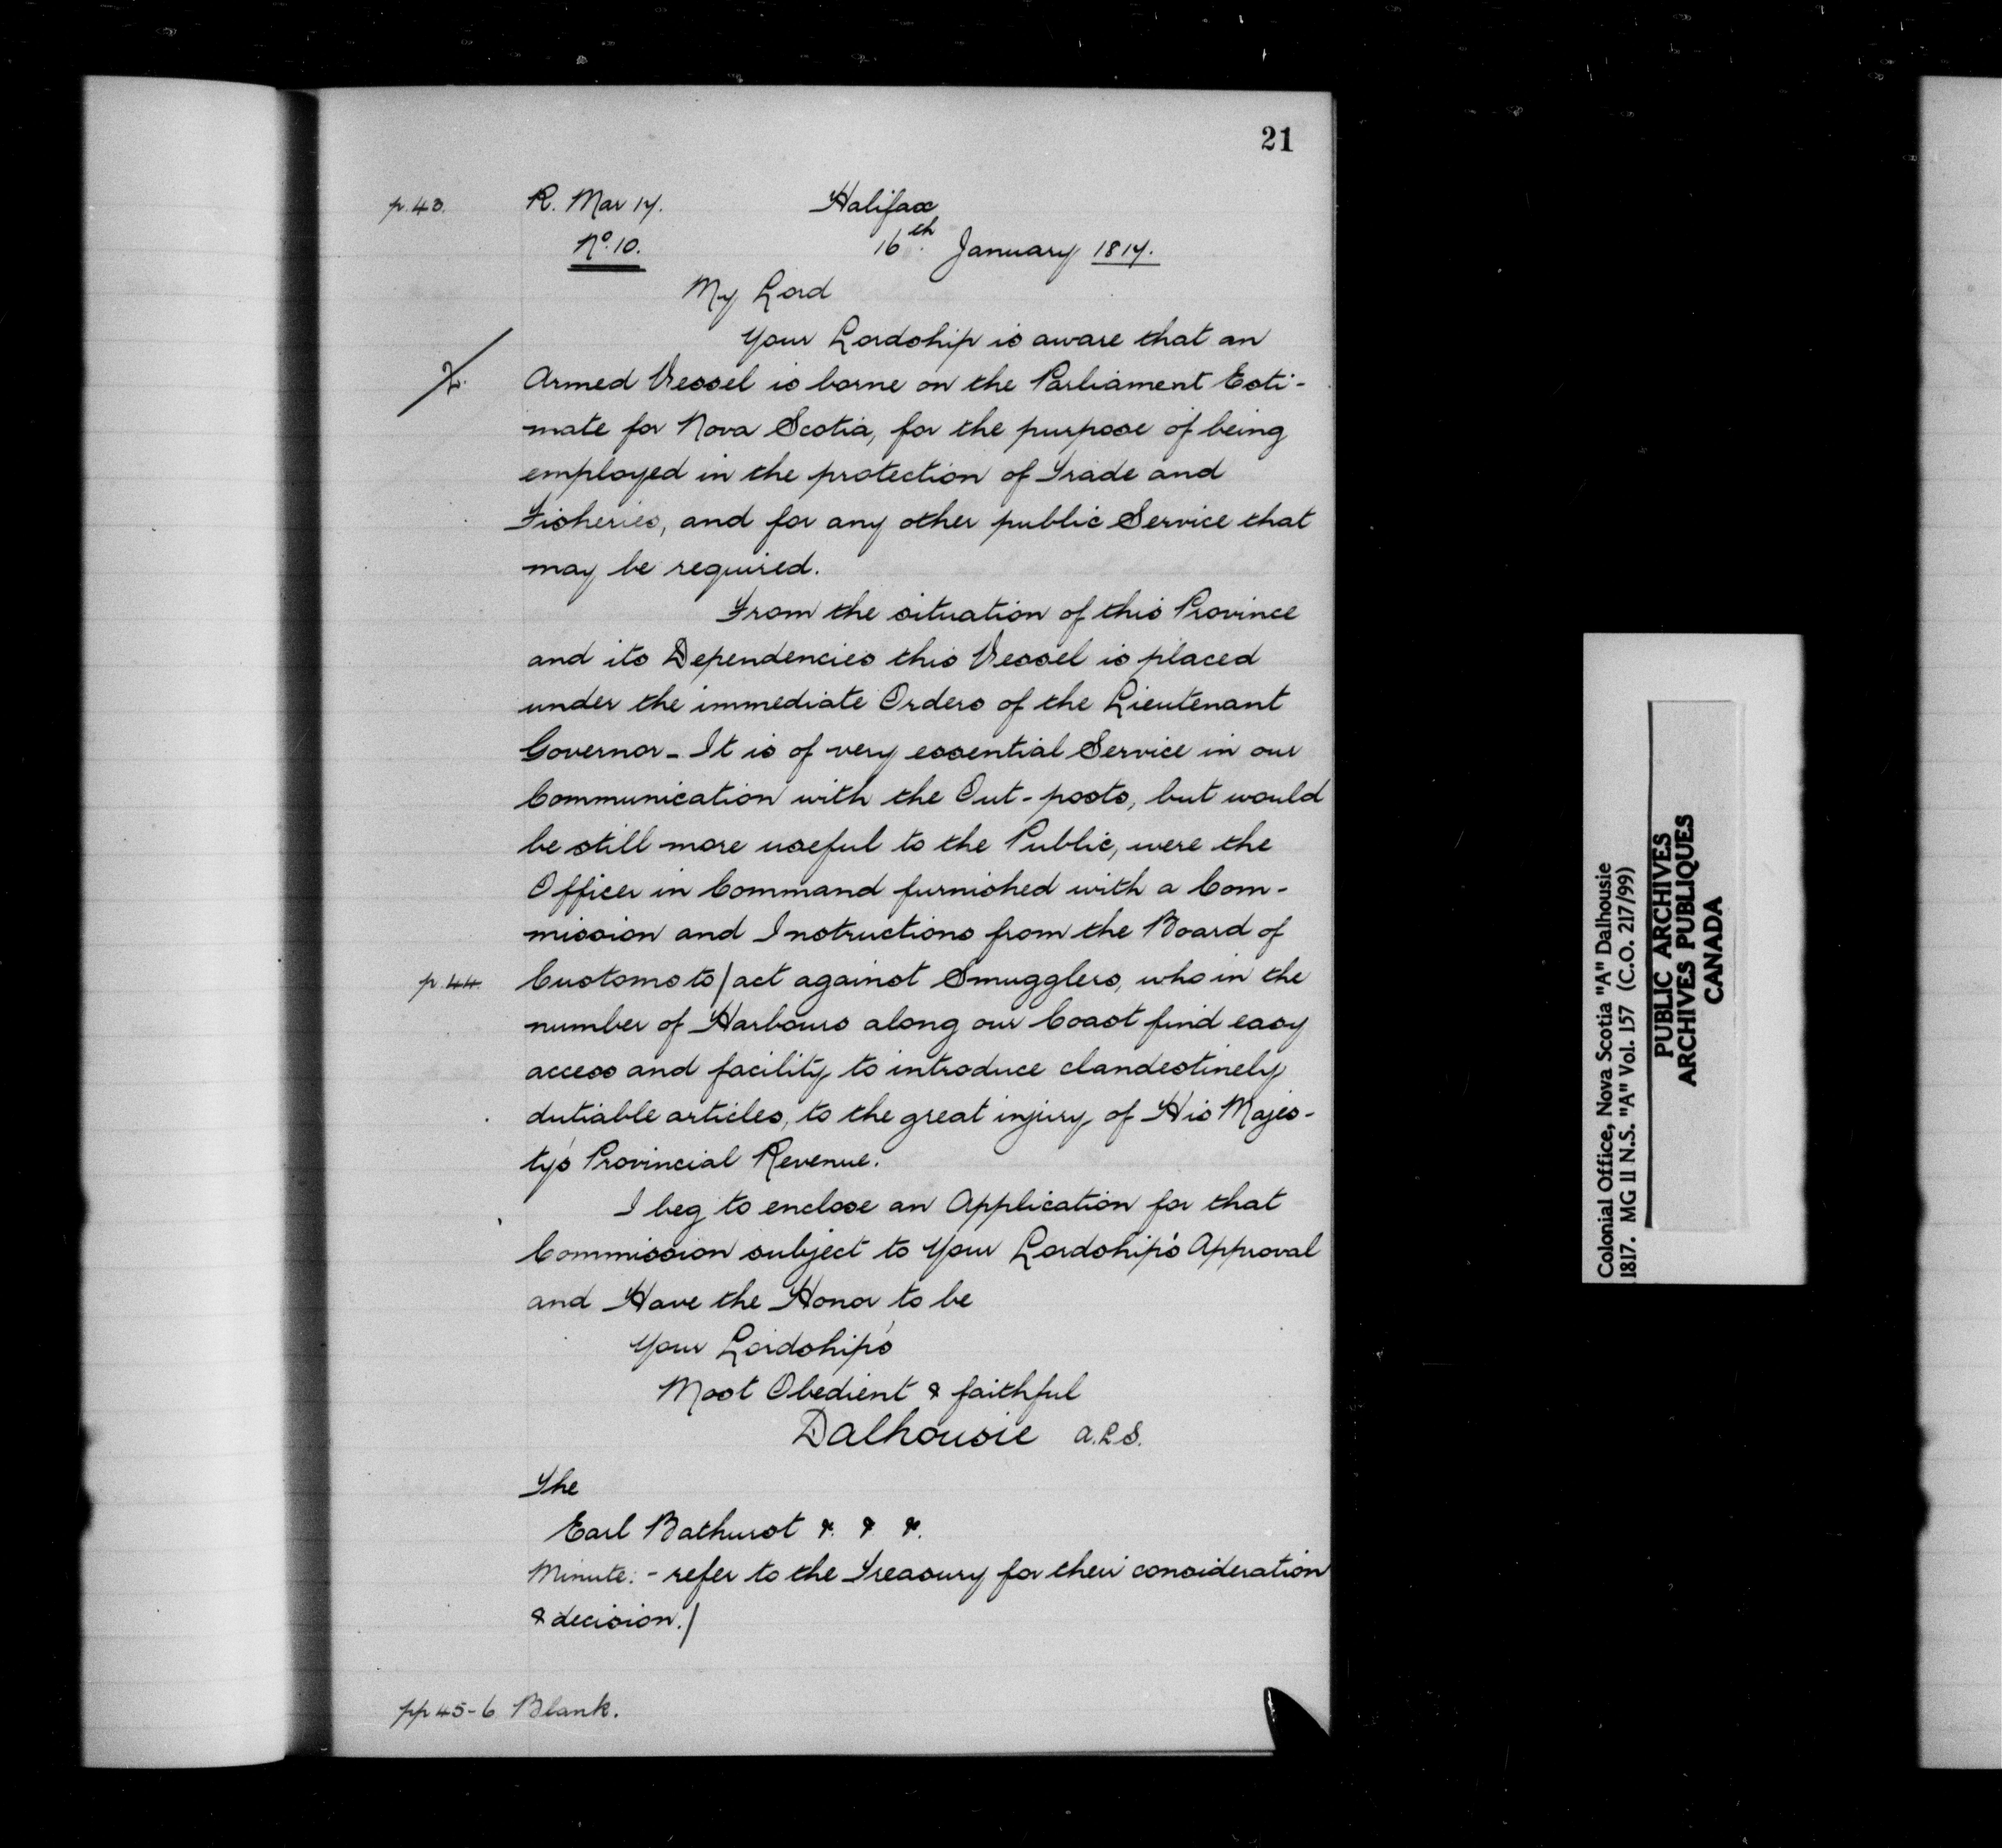 21
p. 43.
R. Mar 17.
Halifax
No. 10.
16th. January 1817.
My Lord
Your Lordship is aware that an
2.
Armed Vessel is borne on the Parliament Esti-
mate for Nova Scotia, for the purpose of being
employed in the protection of Trade and
Fisheries, and for any other public Service that
may be required.
From the situation of this Province
and its Dependencies this Vessel is placed
under the immediate Orders of the Lieutenant
Governor - It is of very essential Service in our
Communication with the Out-posts, but would
be still more useful to the Public, were the
Officer in Command furnished with a Com-
mission and Instructions from the Board of
p. 44.
Customs to / act against Smugglers, who in the
number of Harbours along our Coast find easy
access and facility to introduce clandestinely
dutiable articles, to the great injury of His Majes-
ty's Provincial Revenue.
I beg to enclose an Application for that
Commission subject to Your Lordship's Approval
and Have the Honor to be
Your Lordship's
Most Obedient & faithful
Dalhousie A.L.S.
The
Earl Bathurst &. &. &.
Minute: - refer to the Treasury for their consideration
& decision. /
pp 45-6 Blank.
Colonial Office, Nova Scotia "A" Dalhousie
1817. MG 11 N.S. "A" Vol. 157 (C.O. 217/99)
PUBLIC ARCHIVES
ARCHIVES PUBLIQUES
CANADA